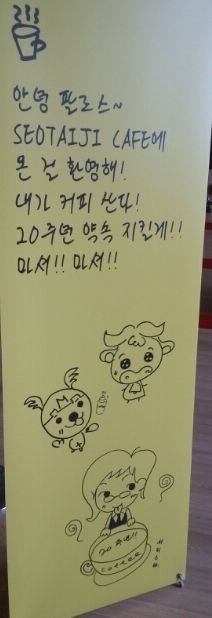 안녕 팔로스~
SEOTAIJI CAFE에
온 걸 환영해!
내가 커피 산다!
20주년 약속 지킬게!!
마셔!! 마셔!!
20 주년!!
COFFEE